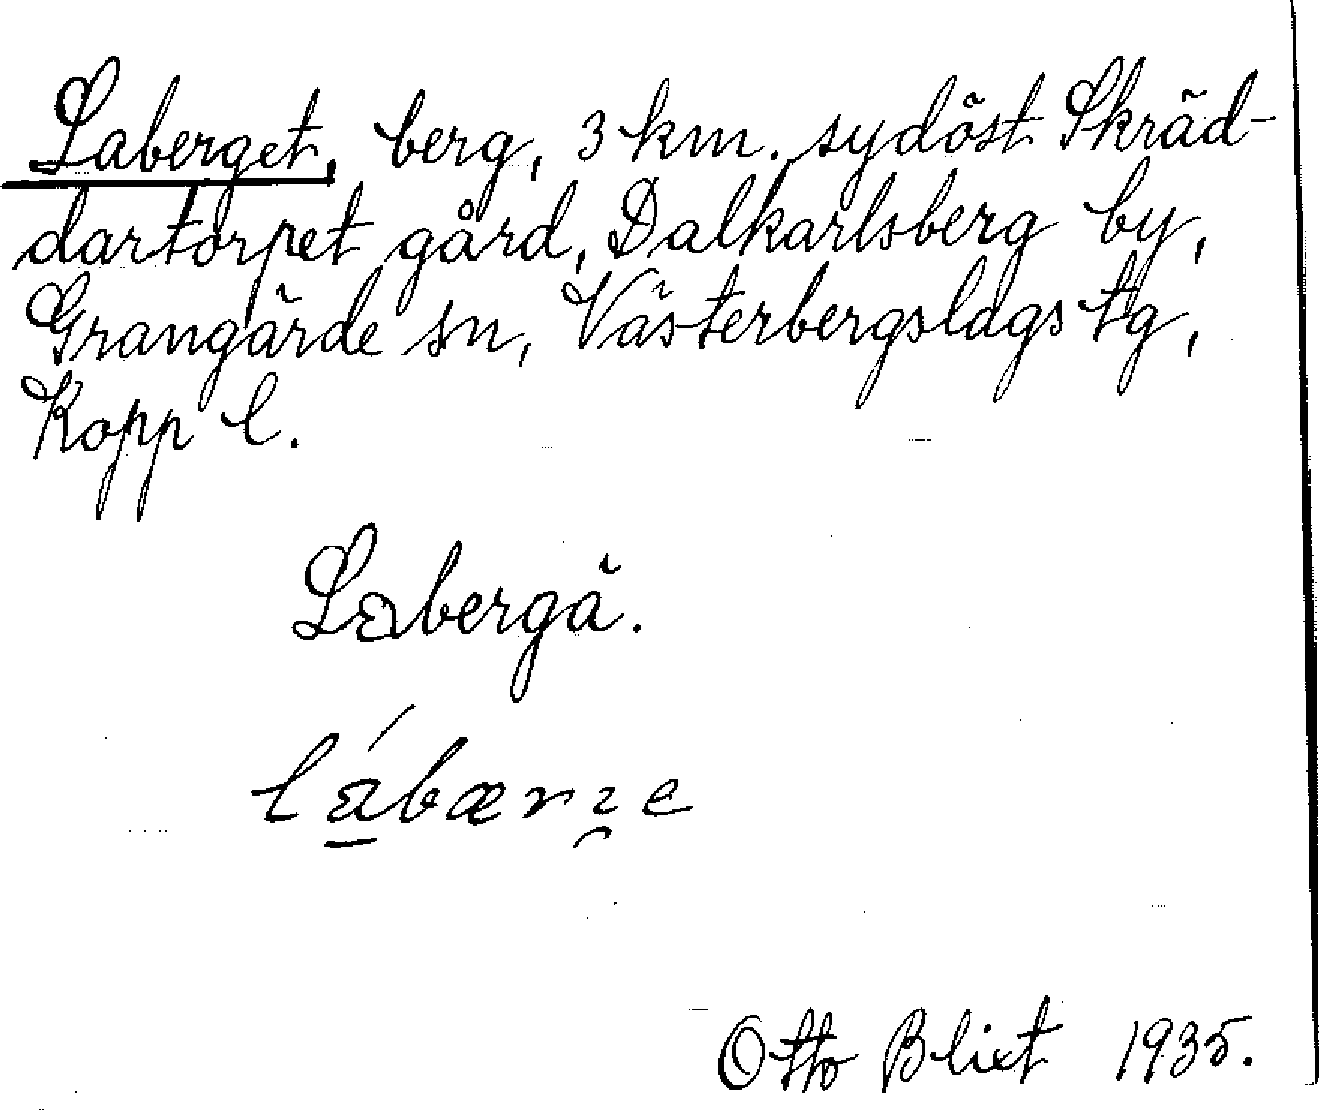 Laberget, berg, 3 km. sydöst Skräd-
dartorpet gård, Dalkarlsberg by,
Grangärde sn, Västerbergslags tg,
Kopp l.
Labergä.
Otto Blixt 1935.